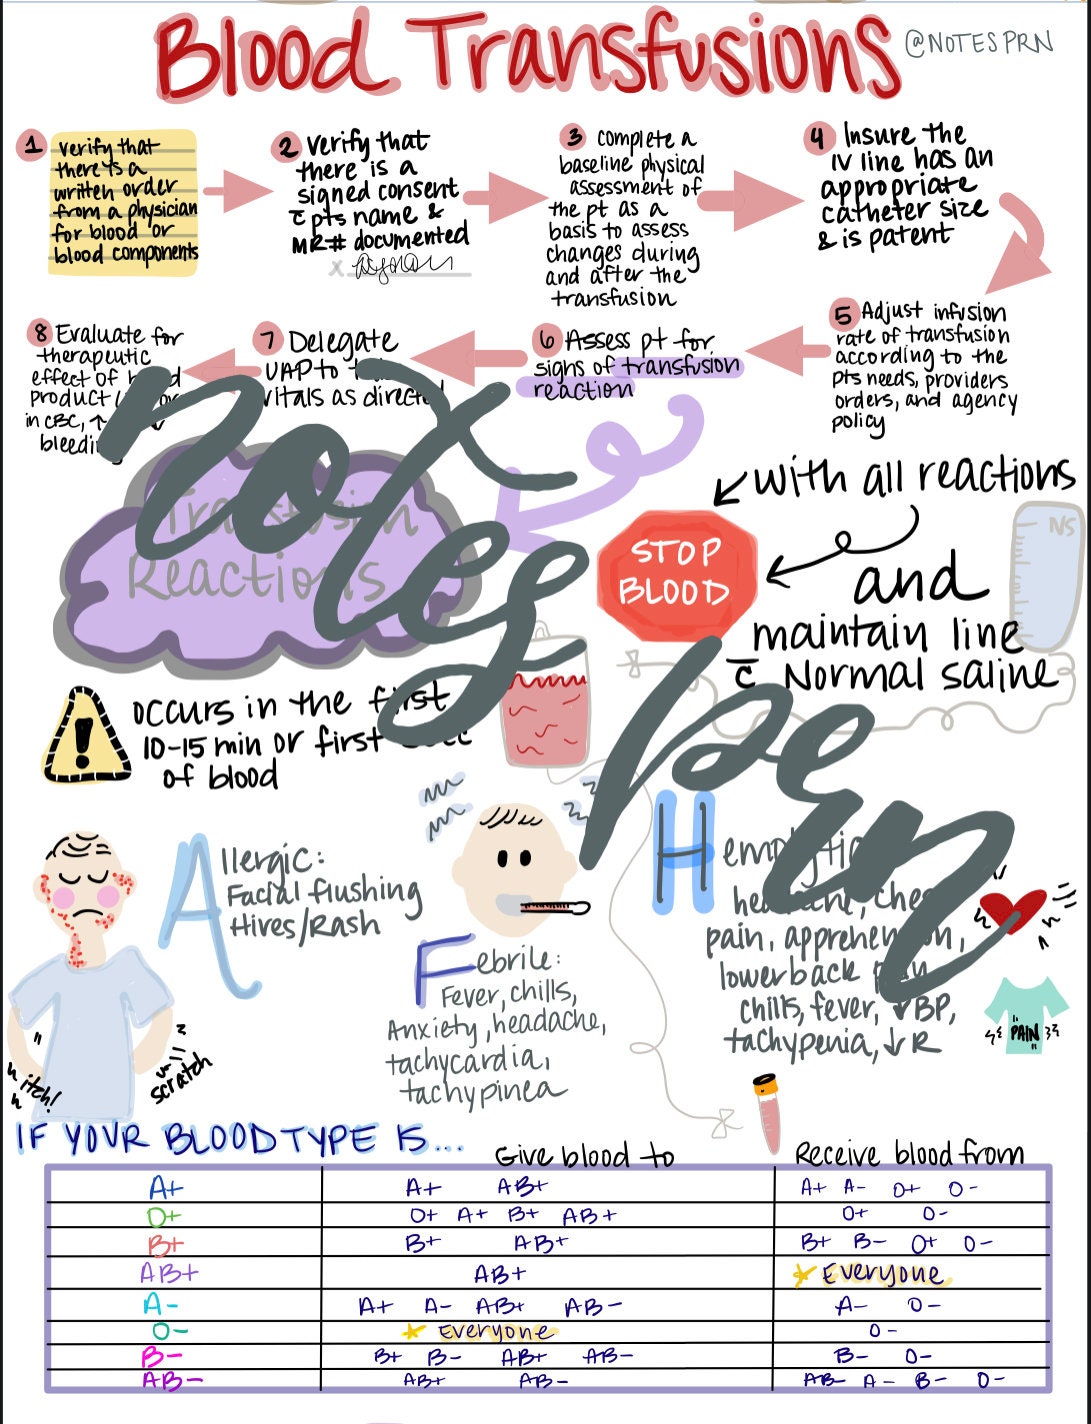 Blood Transfusions
@NOTESPRN
1
verify that
there is a
written order
from a physician
for blood or
blood components
2 Verify that
there is a
signed consent
c̅ pts name &
MR# documented
X
3 complete a
baseline physical
assessment of
the pt as a
basis to assess
changes during
and after the
transfusion
4 Insure the
IV line has an
appropriate
catheter size
& is patent
5 Adjust infusion
rate of transfusion
according to the
pts needs, providers
orders, and agency
policy
6 Assess pt for
signs of transfusion
reaction
7 Delegate
UAP to
vitals as
8 Evaluate for
therapeutic
effect of
product
in CBC, ↑
notes prn
Transfusion
Reactions
STOP
BLOOD
with all reactions
and
maintain line
c̅ Normal saline
NS
!
occurs in the first
10-15 min or first
of blood
Allergic:
Facial flushing
Hives/Rash
itch!
scratch
Febrile:
Fever, chills,
Anxiety, headache,
tachycardia,
tachypinea
Hemolytic
pain, apprehension,
lowerback pain
chills, fever, ↓BP,
tachypenia, ↓R
PAIN
IF YOUR BLOOD TYPE IS...
Give blood to
Receive blood from
A+ A+ AB+ A+ A- O+ O-
O+ O+ A+ B+ AB+ O+ O-
B+ B+ AB+ B+ B- O+ O-
AB+ AB+ Everyone
A- A+ A- AB+ AB- A- O-
O- Everyone O-
B- B+ B- AB+ AB- B- O-
AB- AB+ AB- AB- A- B- O-